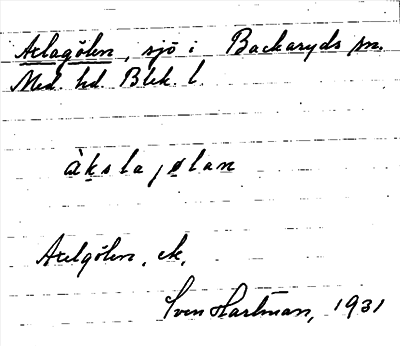 Axlagölen, sjö i Backaryds sn.
Med. hd. Blek. l.
àkslajølan
Axelgölen, ek.
Sven Hartman, 1931